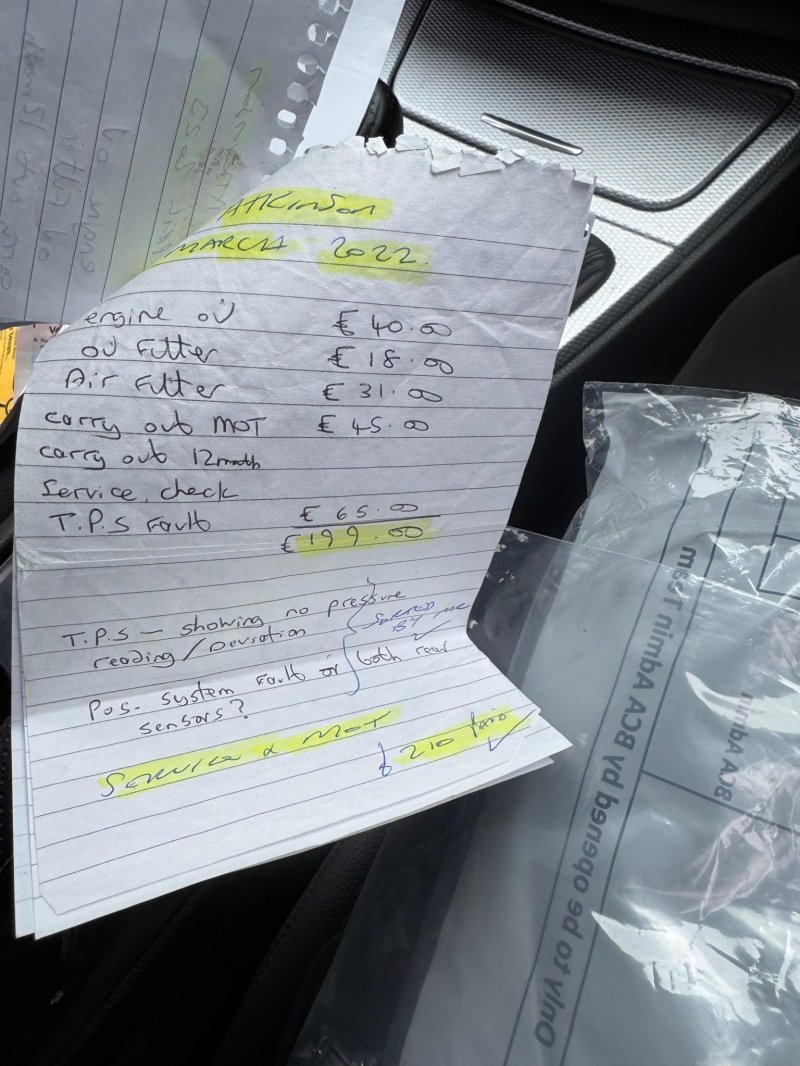 ATKinSon
MARCH 2022
engine oil £ 40.00
oil Filter £ 18.00
Air Filter £ 31.00
carry out MOT £ 45.00
carry out 12month
Service check
T.P.S Fault £ 65.00
£ 199.00
T.P.S – showing no pressure
reading / Deviation
SORTED
BY me
Pos. system Fault or both rear
sensors?
SERVICE & MOT £ 210 PAID
Only to be opened by BCA Admin Team
BCA Admin